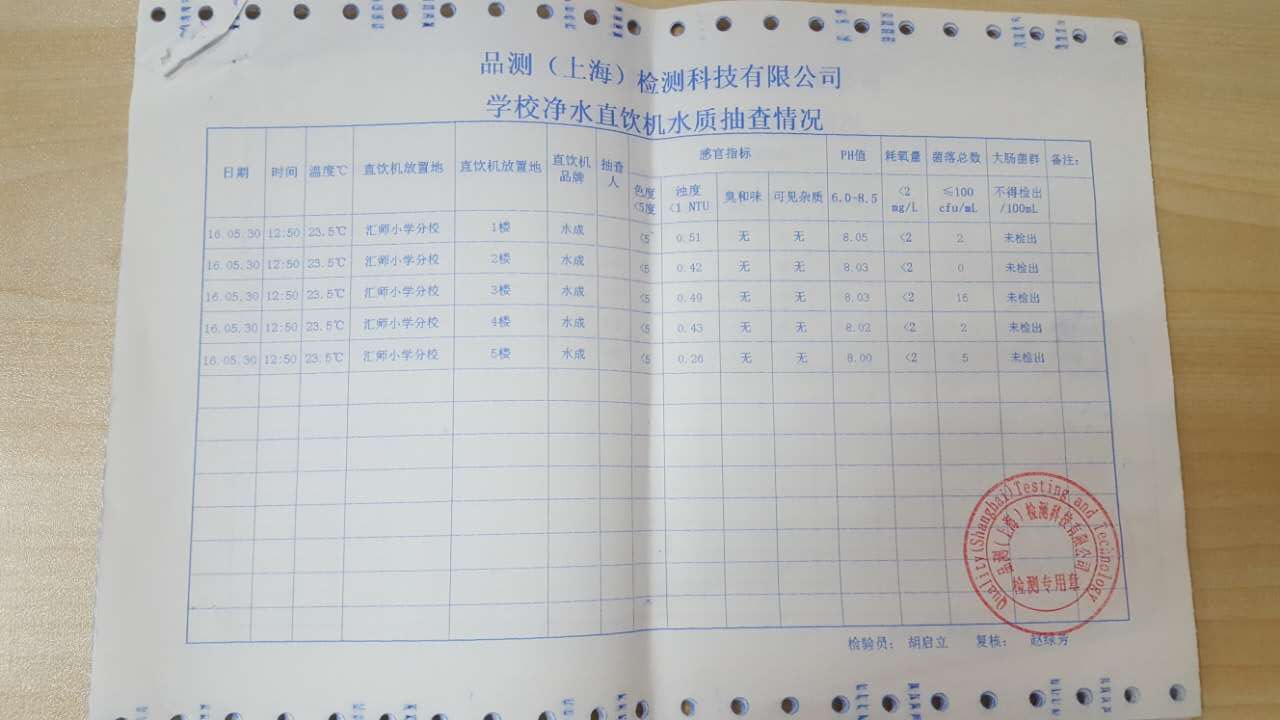 品测（上海）检测科技有限公司
学校净水直饮机水质抽查情况
日期 时间 温度℃ 直饮机放置地 直饮机放置地 直饮机品牌 抽查人 感官指标 PH值 耗氧量 菌落总数 大肠菌群 备注：
色度<5度 浊度<1 NTU 臭和味 可见杂质 6.0-8.5 <2 mg/L ≤100 cfu/mL 不得检出/100mL
16.05.30 12:50 23.5℃ 汇师小学分校 1楼 水成 <5 0.51 无 无 8.05 <2 2 未检出
16.05.30 12:50 23.5℃ 汇师小学分校 2楼 水成 <5 0.42 无 无 8.03 <2 0 未检出
16.05.30 12:50 23.5℃ 汇师小学分校 3楼 水成 <5 0.49 无 无 8.03 <2 16 未检出
16.05.30 12:50 23.5℃ 汇师小学分校 4楼 水成 <5 0.43 无 无 8.02 <2 2 未检出
16.05.30 12:50 23.5℃ 汇师小学分校 5楼 水成 <5 0.26 无 无 8.00 <2 5 未检出
Quality(Shanghai)Testing and Technology
品测(上海)检测科技有限公司
检测专用章
检验员： 胡启立 复核： 赵绿芳